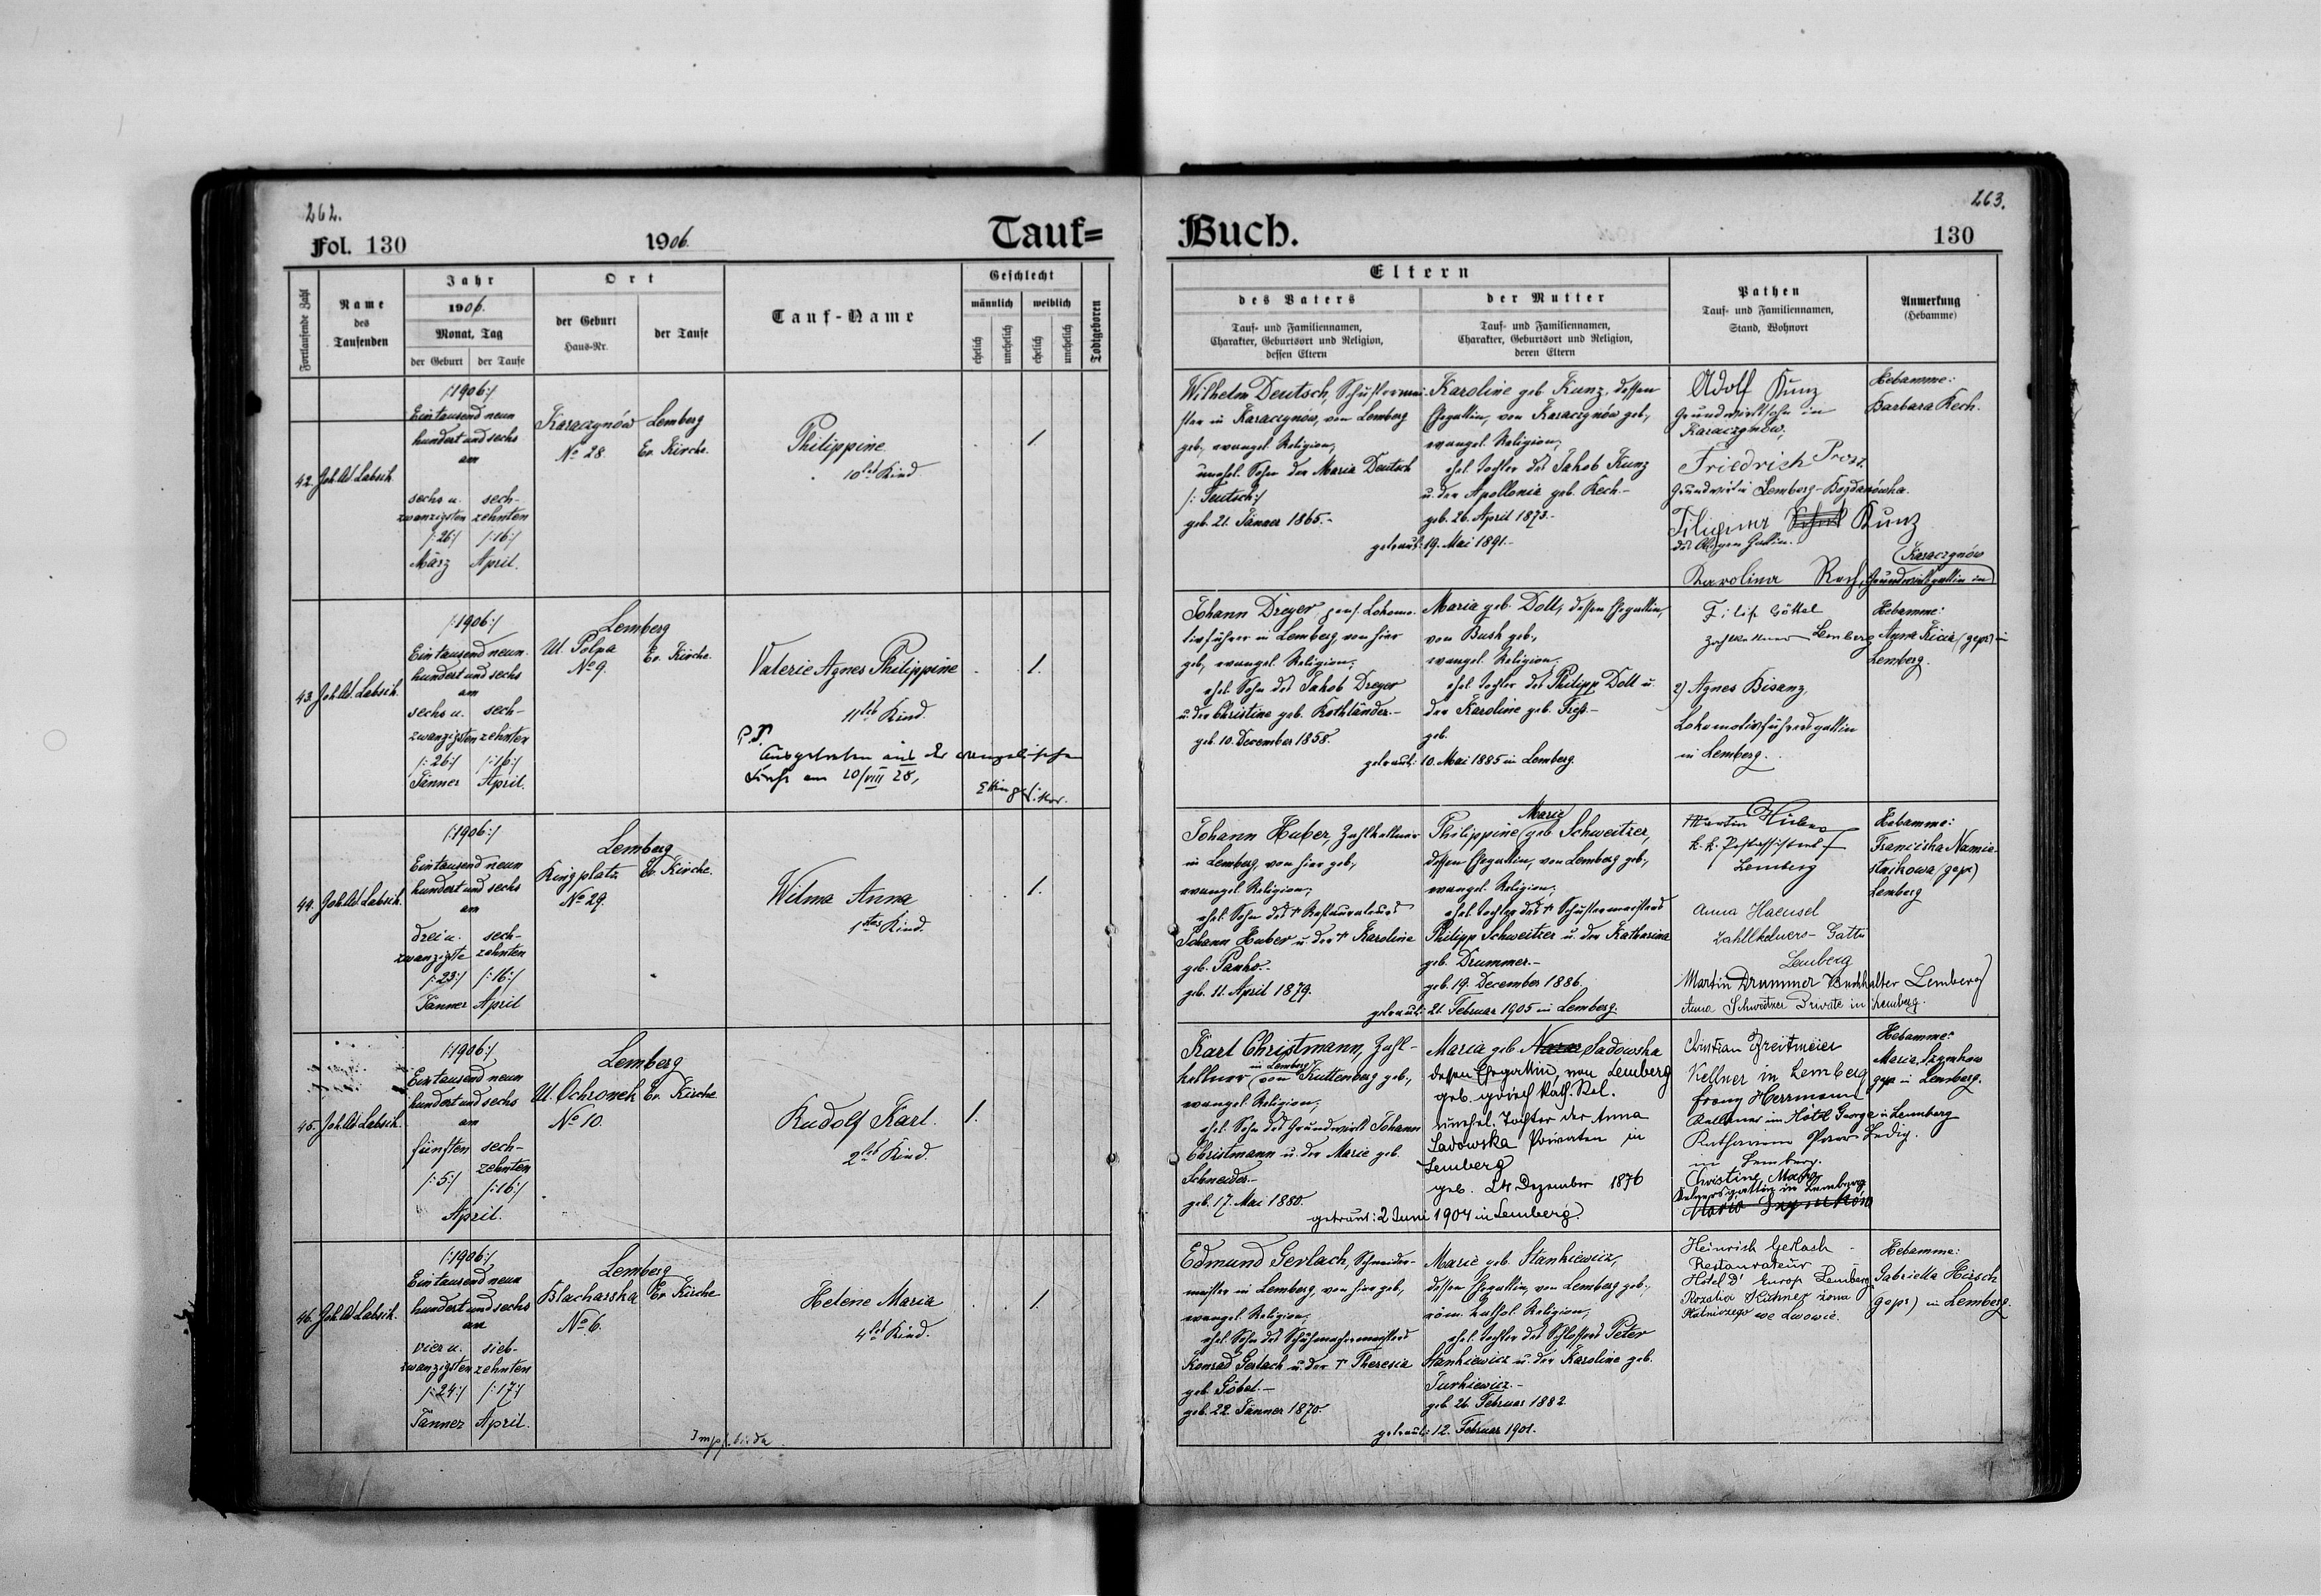 262.
Fol. 130
1906.
Tauf=
Fortlaufende Zahl
Name
des
Taufenden
Jahr
1906.
Monat, Tag
der Geburt
der Taufe
Ort
der Geburt
Haus-Nr.
der Taufe
Tauf-Name
Geschlecht
männlich
weiblich
ehelich
unehelich
ehelich
unehelich
Todtgeboren
42.
Joh. Ad. Labsik
/:1906:/
Eintausend neun
hundert und sechs
am
sechs u.
zwanzigsten
/:26:/
März
sech-
zehnten
/:16:/
April.
Karaczynów
No 28.
Lemberg
Ev. Kirche.
Philippine
10tes Kind.
1
43.
Joh. Ad. Labsik.
/:1906:/
Eintausend neun-
hundert und sechs
am
sechs u.
zwanzigsten
/:26:/
Jänner
sech-
zehnten
/:16:/
April.
Lemberg
Ul. Polna
No 9.
Ev. Kirche.
Valerie Agnes Philippine
11tes Kind.
Ausgetreten aus der evangelischen
Kirche am 20/VIII 28,
1.
44.
Joh. Ad. Labsik.
/:1906:/
Eintausend neun
hundert und sechs
am
drei u.
zwanzigste
/:23:/
Jänner
sech-
zehnten
/:16:/
April
Lemberg
Ringplatz
No 29.
Ev. Kirche.
Wilma Anna
1stes Kind.
1.
45.
Joh. Ad. Labsik.
/:1906:/
Eintausend neun
hundert und sechs
am
fünften
/:5:/
sech-
zehnten
/:16:/
April.
Lemberg
Ul. Ochronek
No 10.
Ev. Kirche
Rudolf Karl.
2tes Kind.
1.
46.
Joh. Ad. Labsik.
/:1906:/
Eintausend neun
hundert und sechs
am
vier u.
zwanzigsten
/:24:/
Jänner
sieb-
zehnten
/:17:/
April.
Lemberg
Blacharska
No 6.
Ev. Kirche
Helene Maria
4tes Kind.
1.
263.
Buch.
130
Eltern
des Vaters
Tauf- und Familiennamen,
Charakter, Geburtsort und Religion,
dessen Eltern
der Mutter
Tauf- und Familiennamen,
Charakter, Geburtsort und Religion,
deren Eltern
Pathen
Tauf- und Familiennamen,
Stand, Wohnort
Anmerkung
(Hebamme)
Wilhelm Deutsch, Schustermei-
ster in Karaczynów, von Lemberg
geb., evangel. Religion,
unehel. Sohn der Maria Deutsch
/:Teutsch:/
geb. 21. Jänner 1865.-
Karoline geb. Kunz, dessen
Ehegattin, von Karaczynów geb.,
evangel. Religion,
ehel. Tochter des Jakob Kunz
u. der Apollonia geb. Kech.-
geb. 26. April 1873.-
getraut: 19. Mai 1891.-
Adolf Kunz
Grundwirtssohn in
Karaczynów,
Friedrich
Grundwirt in Lemberg-Bogdanówka.
Kunz
des Obigen Gattin.
Karolina
Grundwirtsgattin in
Karaczynów
Hebamme:
Barbara Kech.
Johann Dreyer, pens. Lokomo-
tivführer in Lemberg, von hier
geb., evangel. Religion,
ehel. Sohn des Jakob Dreyer
u. der Christine geb. Rothländer.-
geb. 10. December 1858.
Maria geb. Doll, dessen Ehegattin,
von Busk geb.,
evangel. Religion,
ehel. Tochter des Philipp Doll u.
der Karoline geb.
geb.
getraut: 10. Mai 1885 in Lemberg.
Filip Göttel
Zahlkellner Lemberg
2) Agnes Bisanz,
Lokomotivführersgattin
in Lemberg.
Hebamme:
Anna Kicia (gepr) in
Lemberg.
Johann Huber, Zahlkellner
in Lemberg, von hier geb.,
evangel. Religion,
ehel. Sohn des + Restaurateurs
Johann Huber u. der + Karoline
geb. Panho.-
geb. 11. April 1879.
Marie
Philippine geb. Schweitzer,
dessen Ehegattin, von Lemberg geb.,
evangel. Religion,
ehel. Tochter des + Schustermeisters
Philipp Schweitzer u. der Katharina
geb. Drummer.-
geb. 19. December 1886.
getraut: 21. Februar 1905 in Lemberg.
Martin Huber
k. k. Postassistent
Lemberg
Anna Haensel
Zahllkelners- Gattin
Lemberg
Martin Drummer Buchhalter Lemberg
Anna Schweitzer Private in Lemberg.
Hebamme:
Franciska Namia-
stnikowa (gepr)
Lemberg
Karl Christmann, Zahl-
kellner in Lemberg, von Kuttenberg geb.,
evangel. Religion,
ehel. Sohn des Grundwirts Johann
Christmann u. der Marie geb.
Schneider.-
geb. 17. Mai 1880.
Maria geb. Sadowska
dessen Ehegattin, von Lemberg
geb. griech. kath. Rel.
unehel. Tochter der Anna
Sadowska Privaten in
Lemberg
geb. 24 Dezember 1876
getraut: 2 Juni 1904 in Lemberg.
Christian Breitmeier
Kellner in Lemberg
Franz Herrmann
Kellner im Hôtel George in Lemberg
Katharina Ledig.
in Lemberg.
Christine
Kelnersgattin in Lemberg
Hebamme:
Maria Szynkow
gepr in Lemberg.
Edmund Gerlach, Schneider-
meister in Lemberg, von hier geb.,
evangel. Religion,
ehel. Sohn des Schuhmachermeisters
Konrad Gerlach u. der + Theresia
geb. Göbel.-
geb. 22. Jänner 1870.
Marie geb. Stankiewicz,
dessen Ehegattin, von Lemberg geb.,
röm. kathol. Religion,
ehel. Tochter des Schlossers Peter
Stankiewicz u. der Karoline geb.
Jurkiewicz.-
geb. 26. Februar 1882
getraut: 12. Februar 1901.
Heinrich Gerlach
Restaurateur
Hôtel D' Europ Lemberg
Rozalia Kühner żona
we Lwowie.
Hebamme:
Gabriella Hirsch
(gepr) in Lemberg.